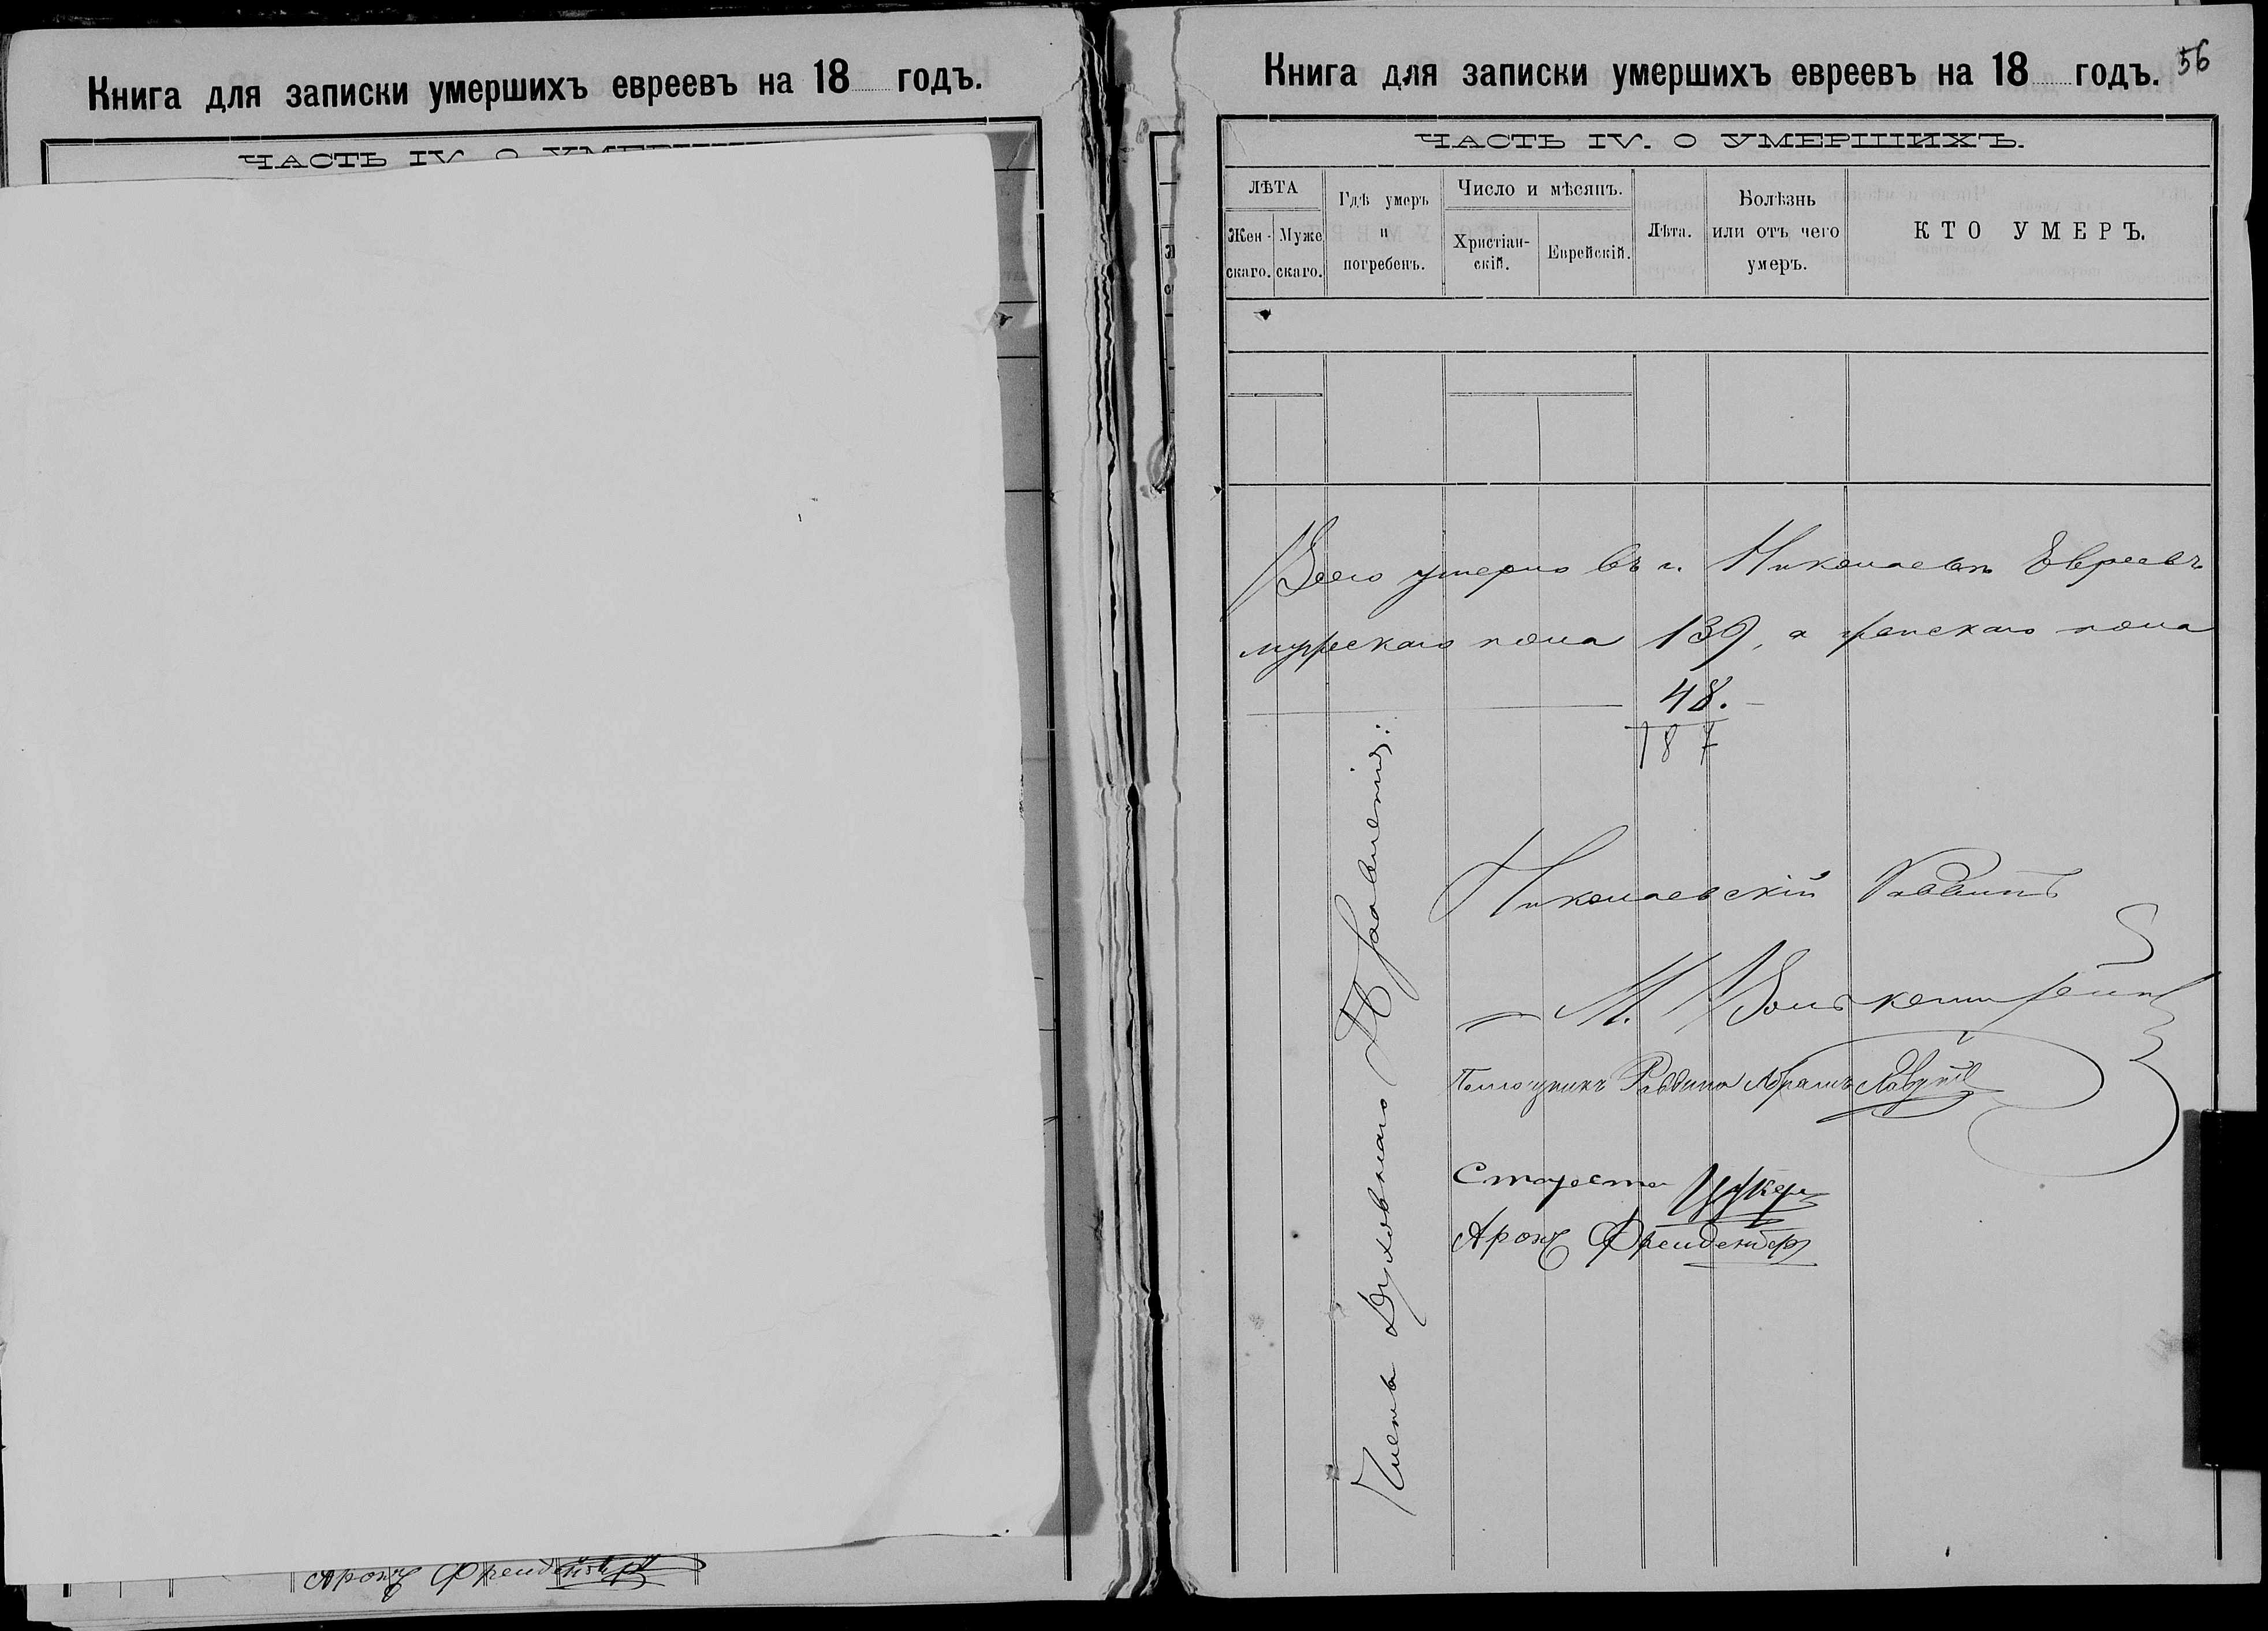 Книга для записки умершихъ евреевъ на 18 годъ.
ЧАСТЬ IV. О
Аронъ Френденбергъ
Книга для записки умершихъ евреевъ на 18 годъ.
56
ЧАСТЬ IV. О УМЕРШИХЪ.
ЛѢТА
Жен-
скаго.
Муже
скаго.
Гдѣ умеръ
и
погребенъ.
Число и мѣсяцъ.
Христіан-
скій.
Еврейскій.
Лѣта.
Болѣзнь
или отъ чего
умеръ.
КТО УМЕРЪ.
Всего умерло въ г. Николаевѣ Евреевъ
мужескаго пола 139, а женскаго пола
48.
187
Николаевскій Раввинъ
М.
Помощникъ Раввина Абрамъ
Староста Цукеръ
Аронъ Френденбергъ
Члены Духовнаго Правленія: